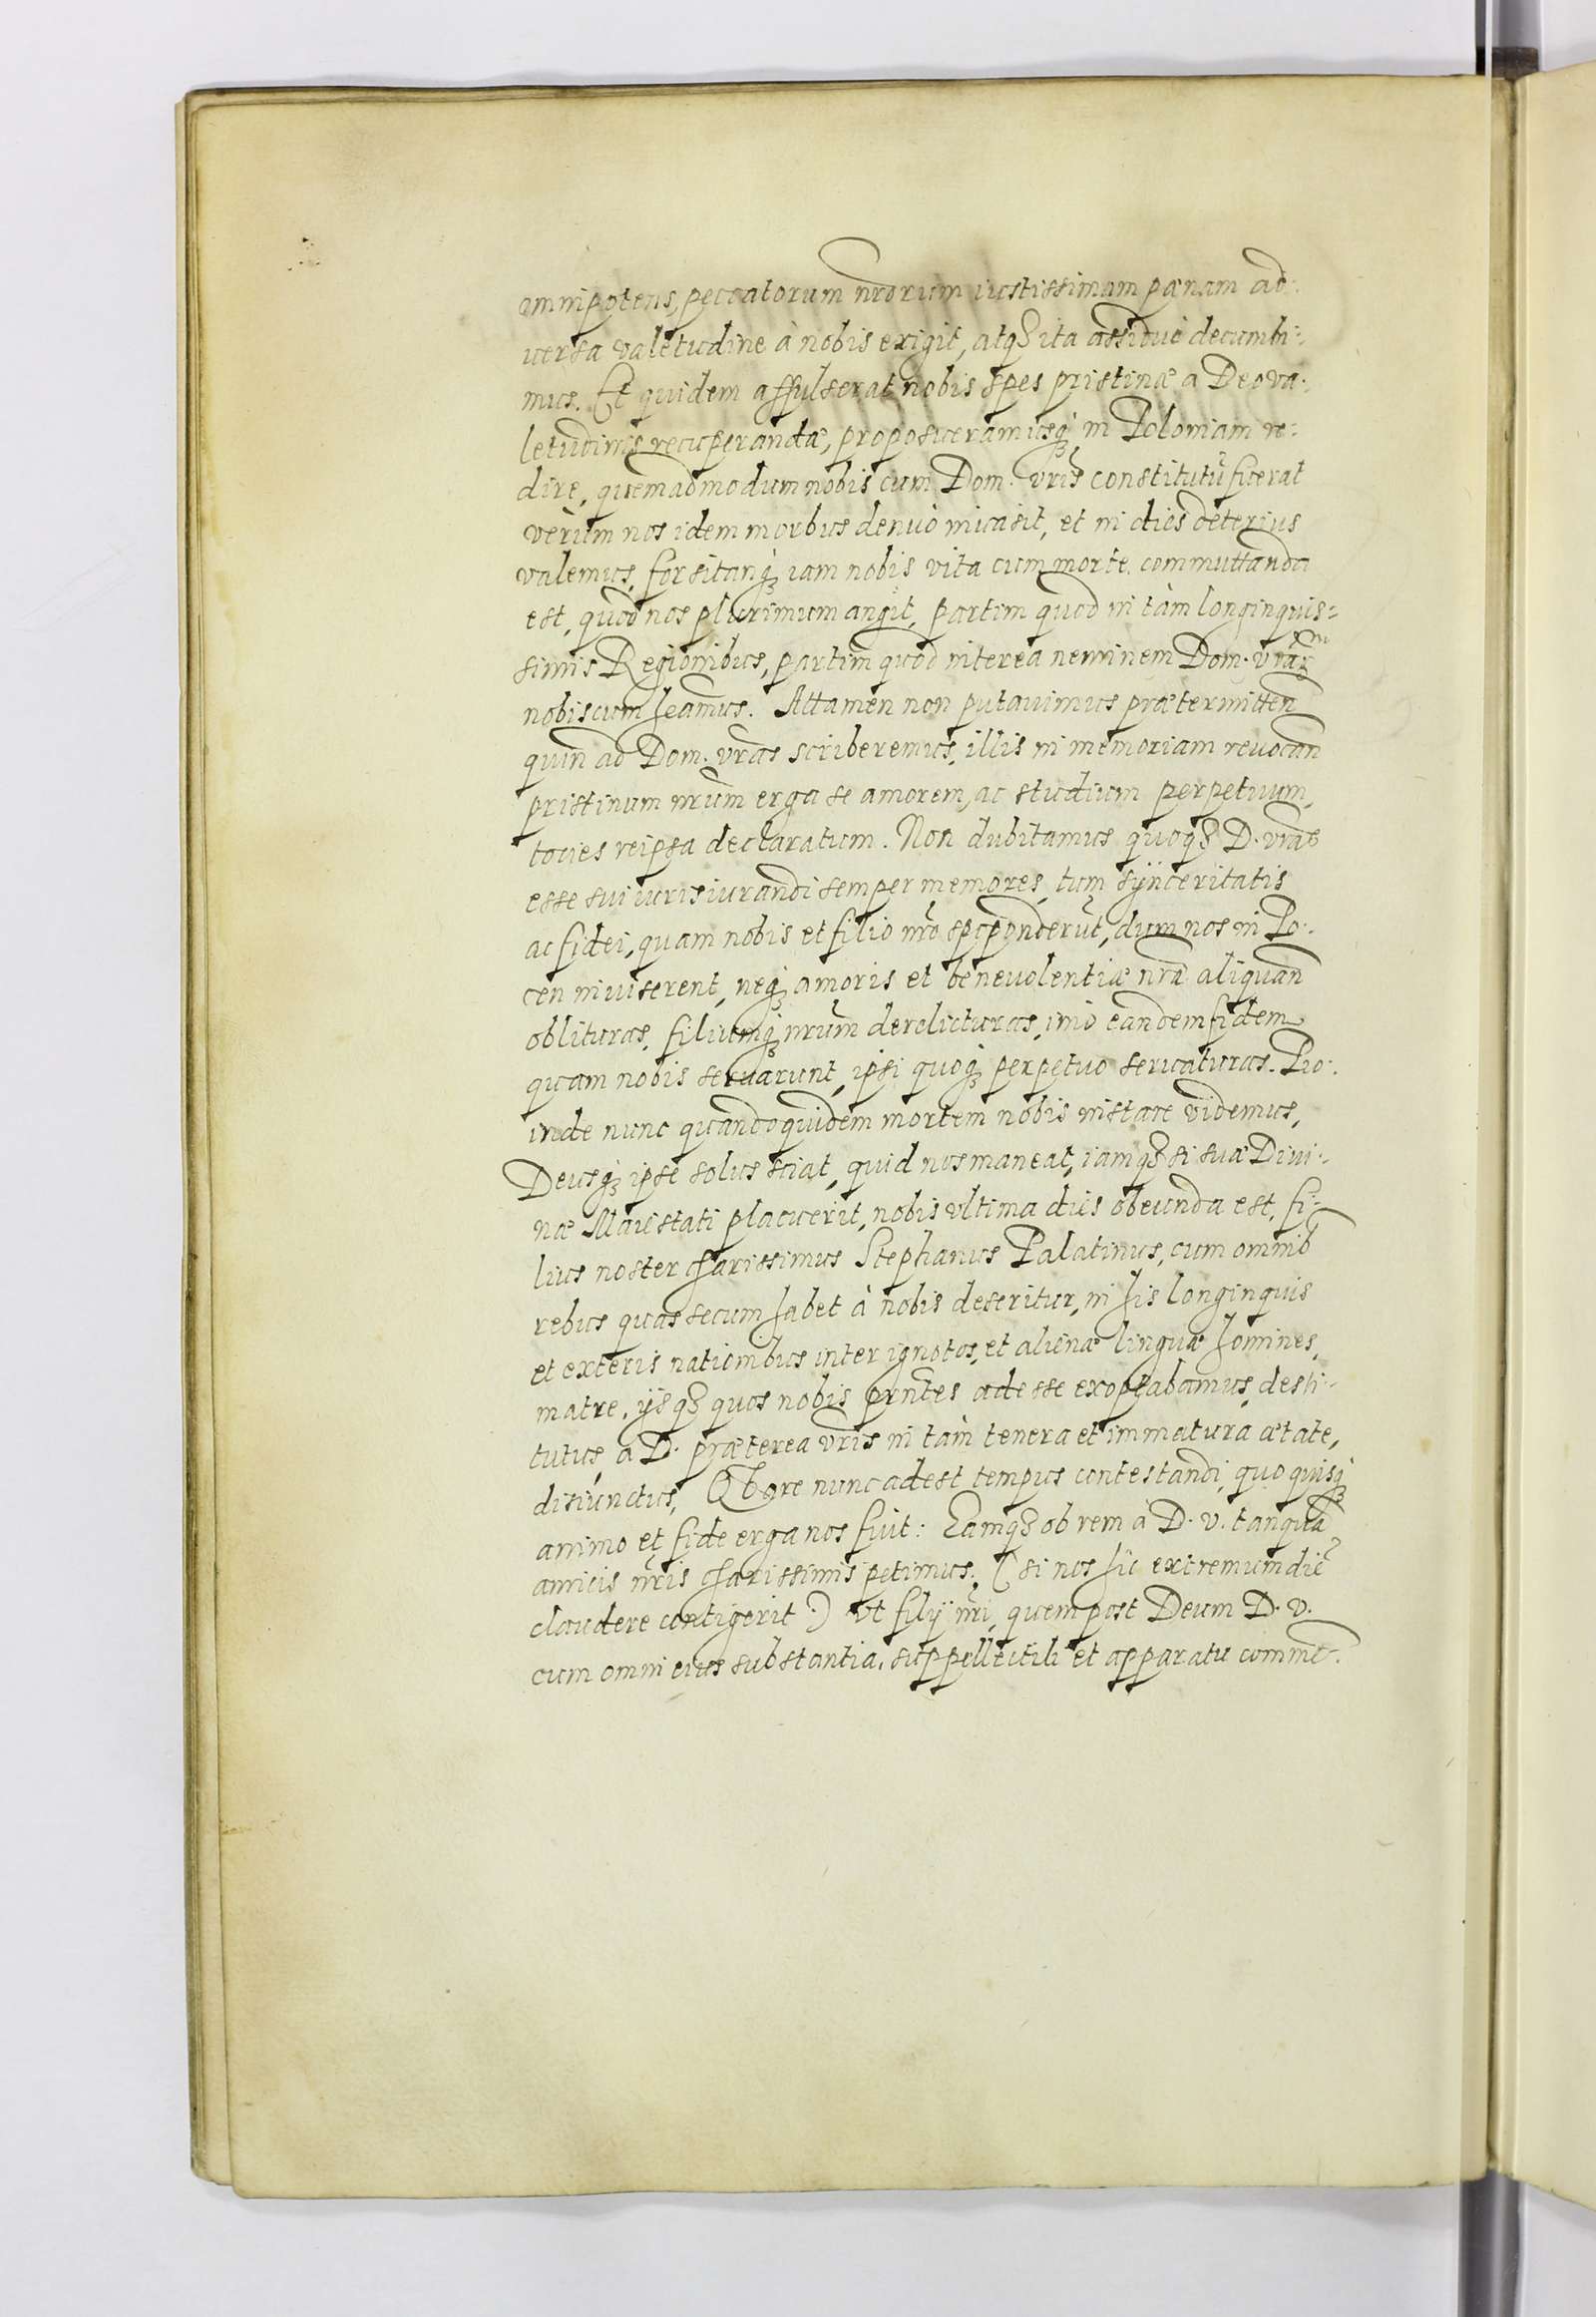 omnipotens, peccatorum nrorum iustissimam pœnam ad:
uersa valetudine à nobis exigit, atq3 ita assiduè decumbi:
mus. Et quidem affulserat nobis spes pristinæ a Deo va:
letudinis recuperandæ, proposueramusq3 in Poloniam re:
dire, quemadmodum nobis cum Dom. vris constitutũ fuerat
verùm nos idem morbus denuò inuasit, et in dies deterius
valemus, forsitanq3 iam nobis vita cum morte commuttanda
est, quod nos plurimum angit, partim quod in tàm longinquis:
simis Regionibus, partim quod interea neminem Dom. vrarm
nobiscum heamus. Attamen non putauimus prætermitten
quin ad Dom. vras scriberemus, illis in memoriam reuocan
pristinum nrum erga se amorem, ac studium perpetuum,
tocies reipsa declaratum. Non dubitamus quoq3 D. vras
esse sui iurisiurandi semper memores, tum sÿnceritatis
ac fidei, quam nobis et filio nro spoponderũt, dum nos in Po:
cen inuiserent, neq3 amoris et beneuolentiæ nrã aliquan
oblituras, filiumq3 nrum derelicturas, imò eandem fidem
quam nobis seruarunt, ipsi quoq3 perpetuo seruaturas. Pro:
inde nunc quandoquidem mortem nobis instare videmus,
Deusq3 ipse solus sciat, quid nos maneat, iamq3 si suæ Diui:
næ Maiestati placuerit, nobis vltima dies obeunda est, fi:
lius noster charissimus Stephanus Palatinus, cum omnib
rebus quas secum habet à nobis deseritur, in his longinquis
et exteris nationibus inter ignotos, et alienæ linguæ homines,
matre, ijsq3 quos nobis prntes adesse exoptabamus, desti:
tutus, a D. præterea vris in tàm tenera et immatura ætate,
disiunctus, Quare nunc adest tempus contestandi, quo quisq3
animo et fide erga nos fuit: Eamq3 ob rem à D. v. tanquã
amicis nris charissimis petimus, (si nos hic extremum diẽ
claudere contigerit.) vt filÿ nri, quem post Deum D. v.
cum omni eius substantia, suppellectili et apparatu commẽ.